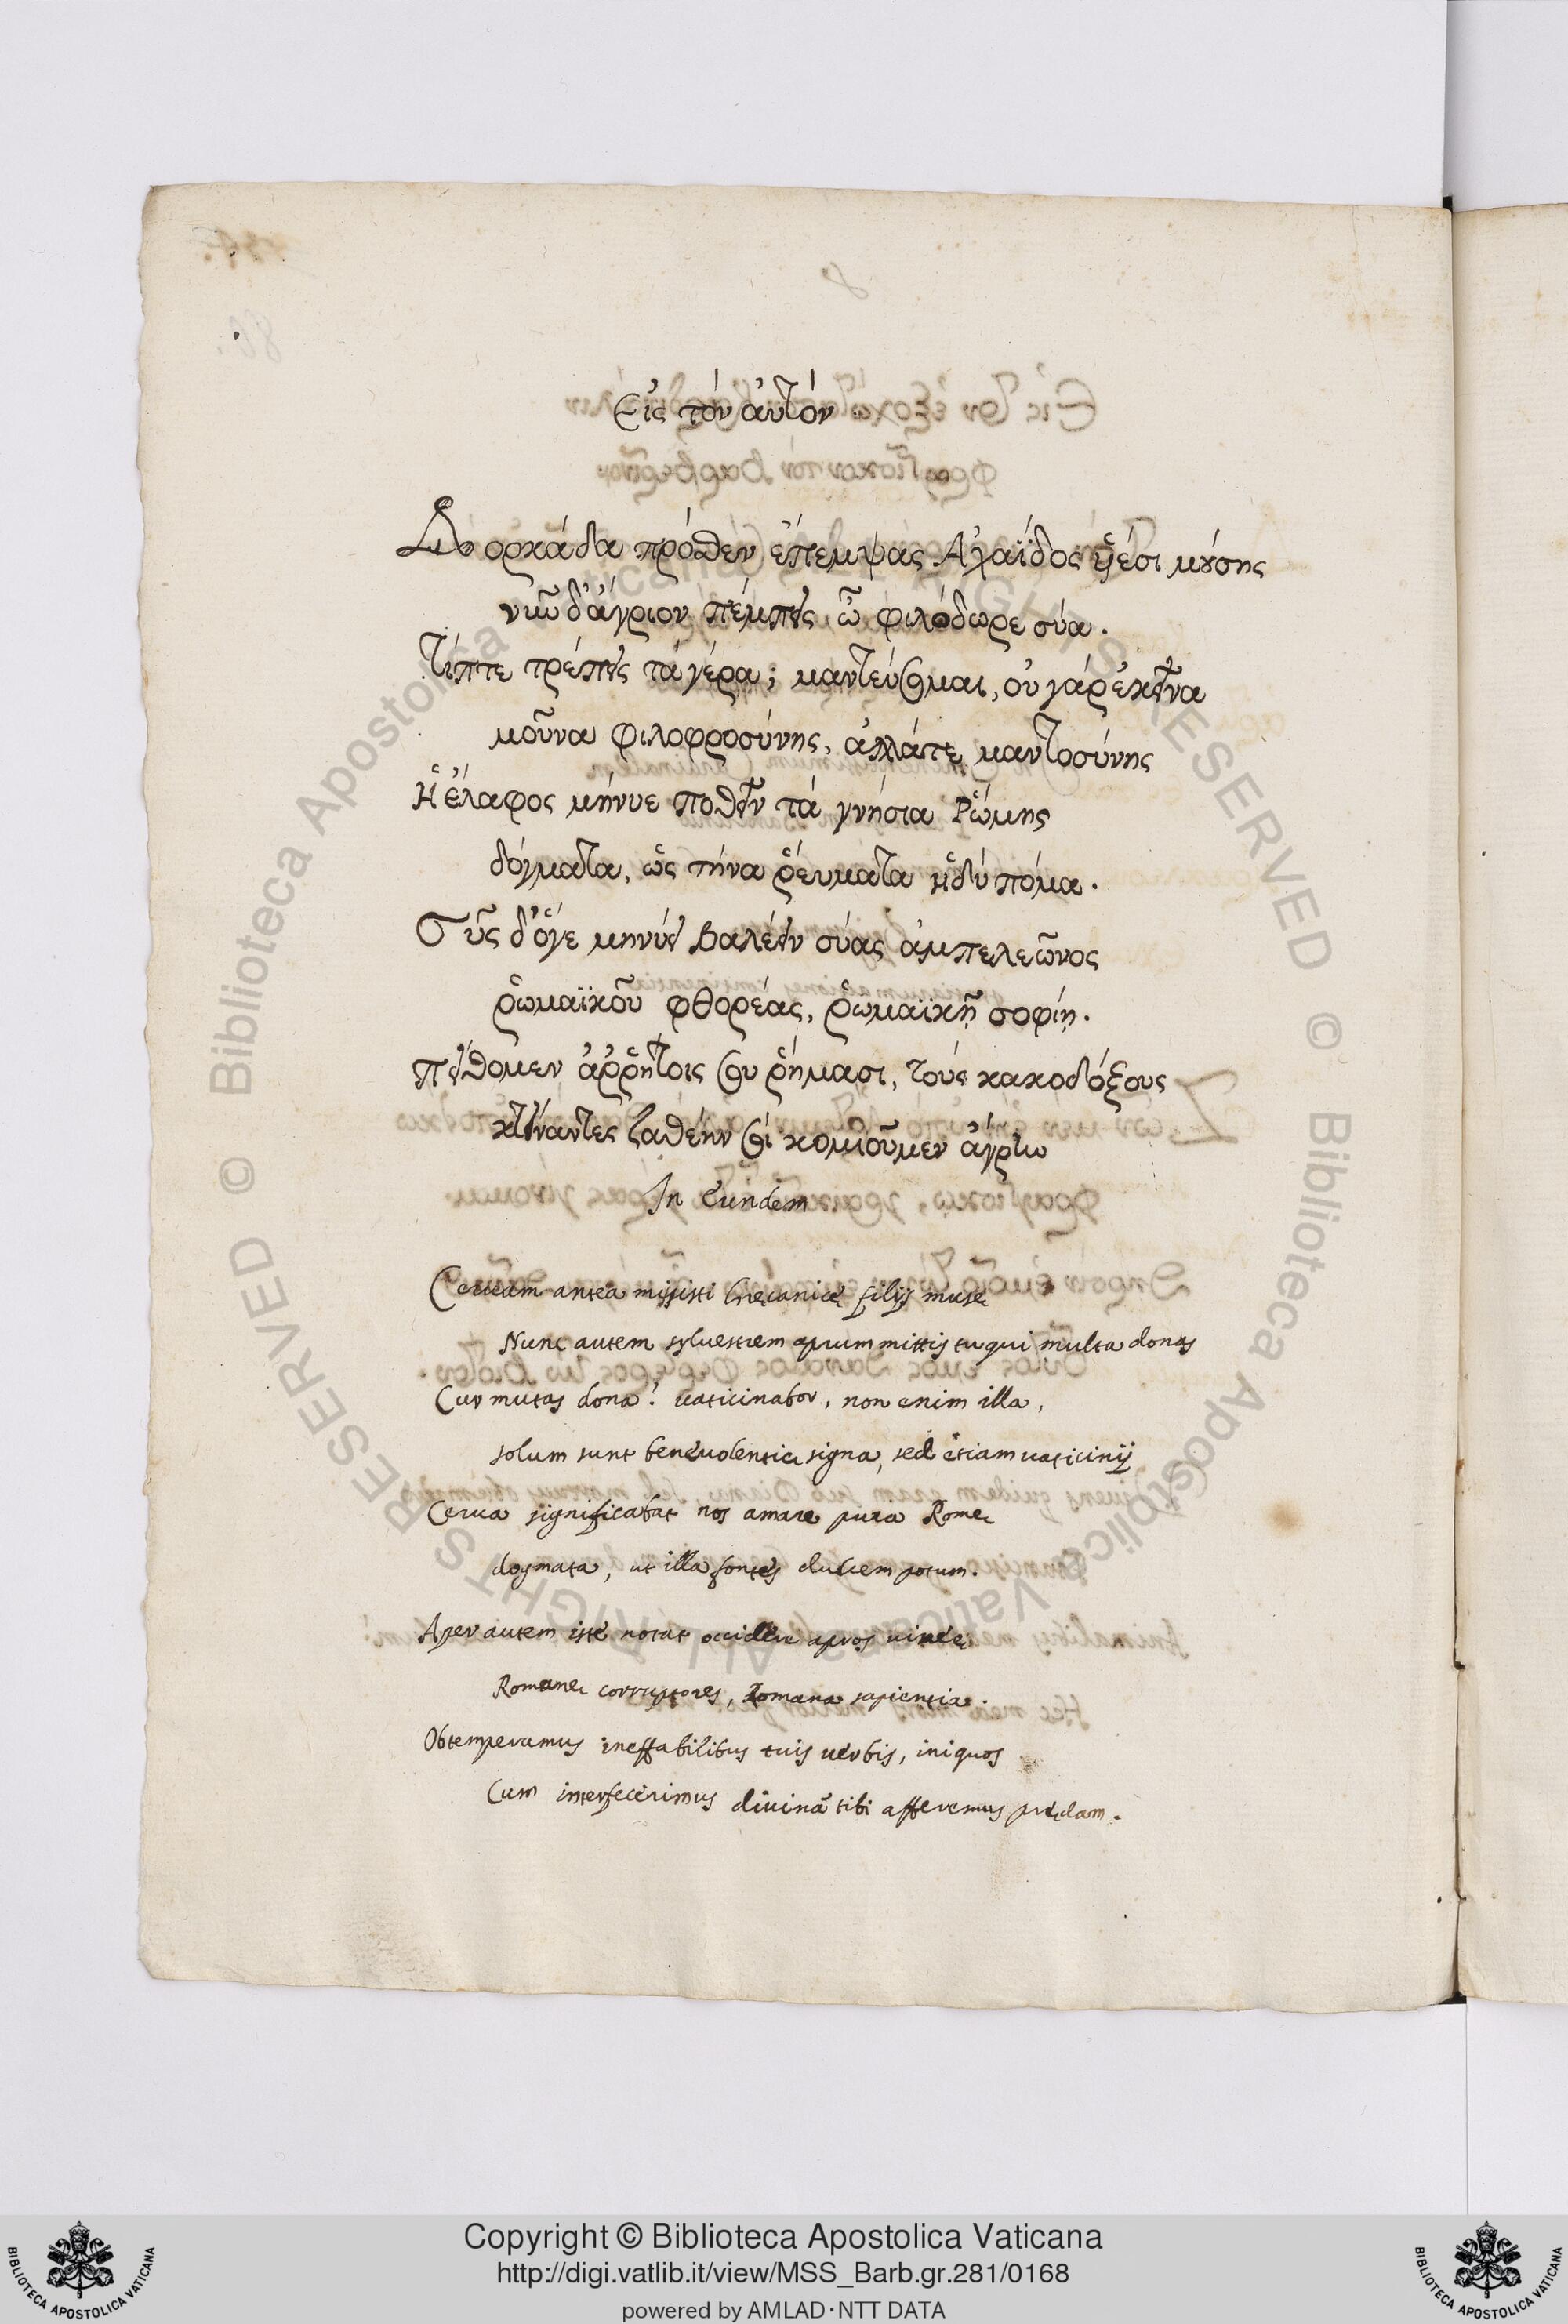 Εἰς τὸν αὐτόν
Δορκάδα πρόσθεν ἔπεμψας Ἀχαΐδος υἱέσι μούσης
νῦν δ' ἄγριον πέμπεις ὦ φιλόδωρε σύα.
Τίπτε τρέπεις τὰ γέρα; μαντεύσομαι, οὐ γάρ ἐκεῖνα
μοῦνα φιλοφροσύνης, ἀλλά τε μαντοσύνης
Ἡ ἔλαφος μήνυε ποθεῖν τὰ γνήσια Ῥώμης
δόγματα, ὡς τήνα ῥεύματα ἡδὺ πόμα.
Σῦς δ' ὅγε μηνύει βαλέειν σύας ἀμπελεῶνος
ῥωμαϊκοῦ φθορέας, ῥωμαϊκῇ σοφίῃ.
πείθομεν ἀῤῥήτοις σου ῥήμασι, τοὺς κακοδόξους
κτείναντες ζαθέην σοὶ κομιοῦμεν ἄγρην
In Eundem
Ceruam antea misisti Grecanicę filijs musę
Nunc autem syluestrem aprum mittis tu qui multa donas
Cur mutas dona? uaticinabor, non enim illa,
solum sunt beneuolentię signa, sed etiam uaticinij
Cerua significabat nos amare pura Romę
dogmata, ut illa fontes dulcem potum.
Aper autem iste notat occidere apros uineę
Romanę corruptores, Romana sapientia.
Obtemperamus ineffabilibus tuis uerbis, iniquos
Cum interfecerimus diuinā tibi afferemus prędam.
Copyright © Biblioteca Apostolica Vaticana
http://digi.vatlib.it/view/MSS_Barb.gr.281/0168
powered by AMLAD·NTT DATA